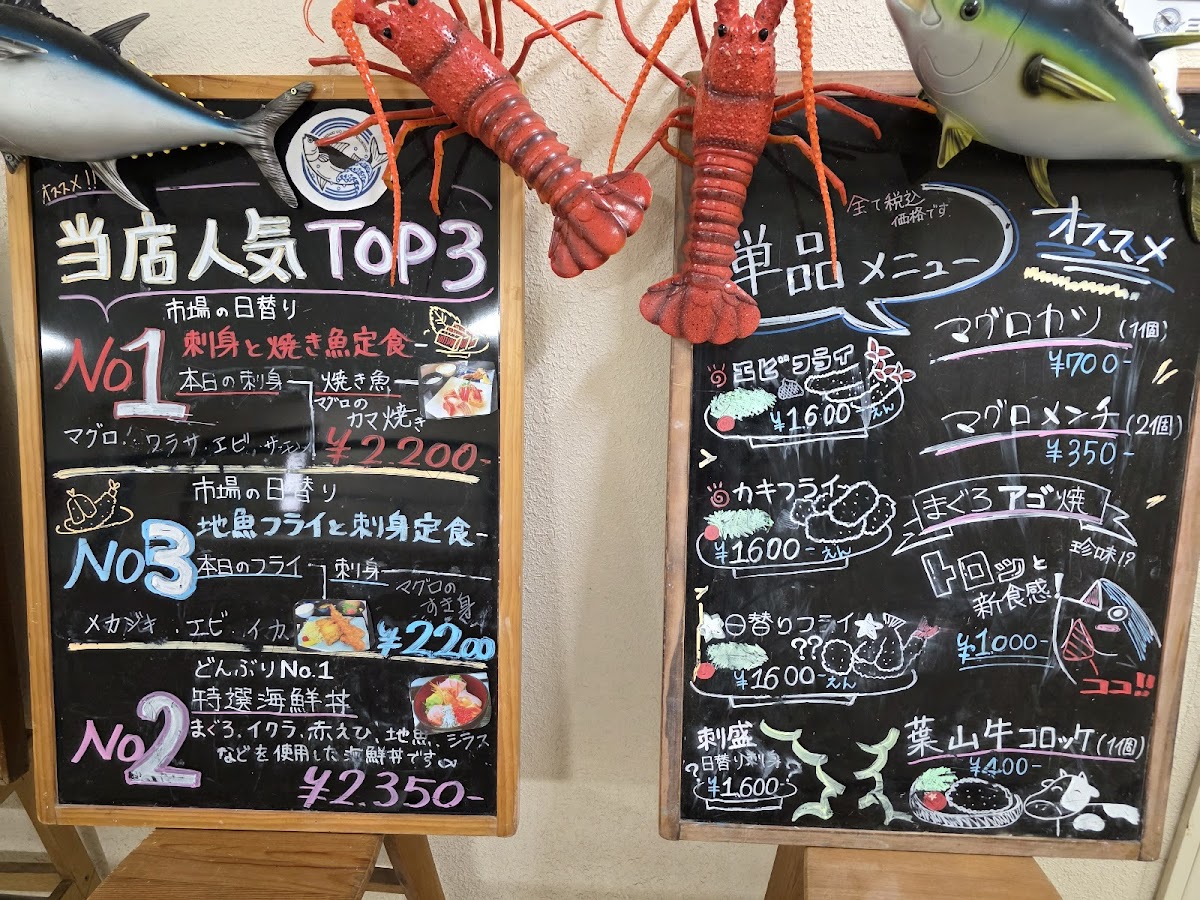 オススメ!!
当店人気TOP3
市場の日替り
No1 刺身と焼き魚定食
本日の刺身 焼き魚
マグロの
カマ焼き
マグロ、ワラサ・エビ・サーモン
¥2200-
市場の日替り
No3 地魚フライと刺身定食
本日のフライ 刺身
マグロの
すき身
メカジキ・エビ・イカ
¥2200
どんぶりNo.1
No2 特選海鮮丼
まぐろ、イクラ、赤えび、地魚、シラス
などを使用した海鮮丼です
¥2.350-
全て税込
価格です
単品メニュー
エビフライ
¥1600-えん
カキフライ
¥1600-えん
日替りフライ
??
¥1600-えん
刺盛
?日替り刺身?
¥1.600-
オススメ
マグロカツ(1個)
¥700-
マグロメンチ(2個)
¥350-
まぐろアゴ焼
珍味!?
トロッと
新食感
¥1000-
ココ!!
葉山牛コロッケ(1個)
¥400-